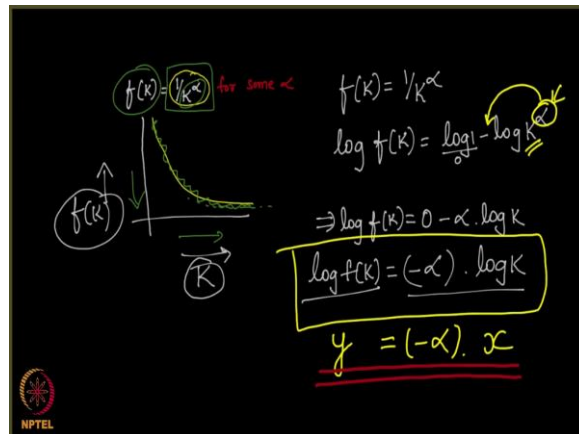 f(K) = 1/K^α for some α
f(K)
K
f(K) = 1/K^α
log f(K) = log1 - log K^α
0
⇒ log f(K) = 0 - α. log K
log f(K) = (-α) . log K
y = (-α). x
NPTEL